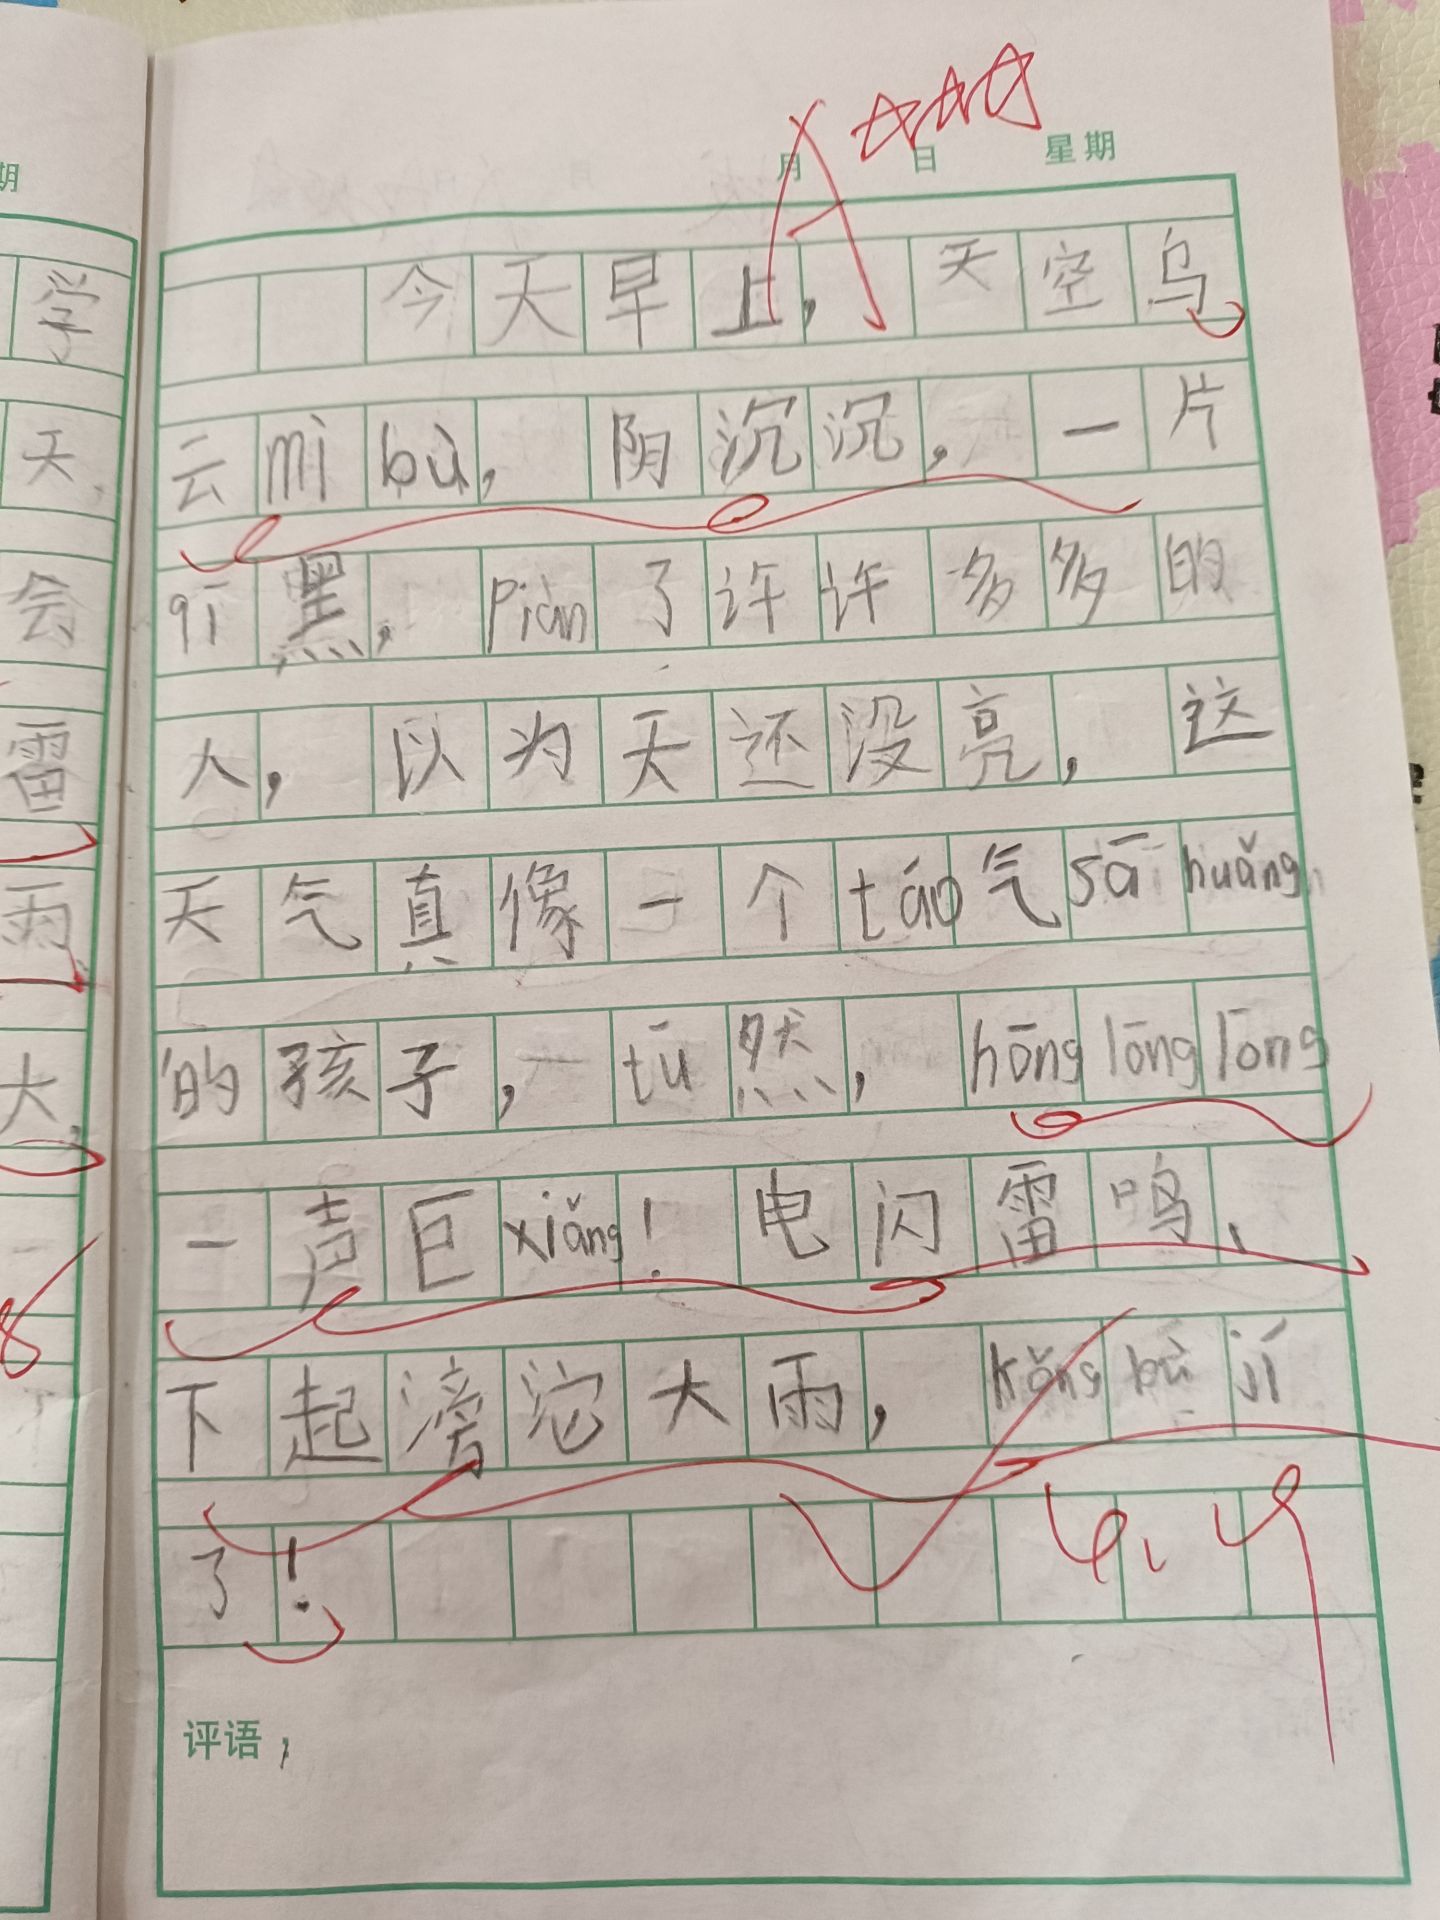 期
学
天,
会
雷
雨,
大,
8
A
月 日 星期
今天早上,天空乌
云mì bù,阴沉沉,一片
qī黑,piàn了许许多多的
人,以为天还没亮,这
天气真像一个táo气sā huǎng
的孩子,tū然,hōng lōng lōng
一声巨xiǎng!电闪雷鸣、
下起滂沱大雨,kǒng bù jí
了!
评语;